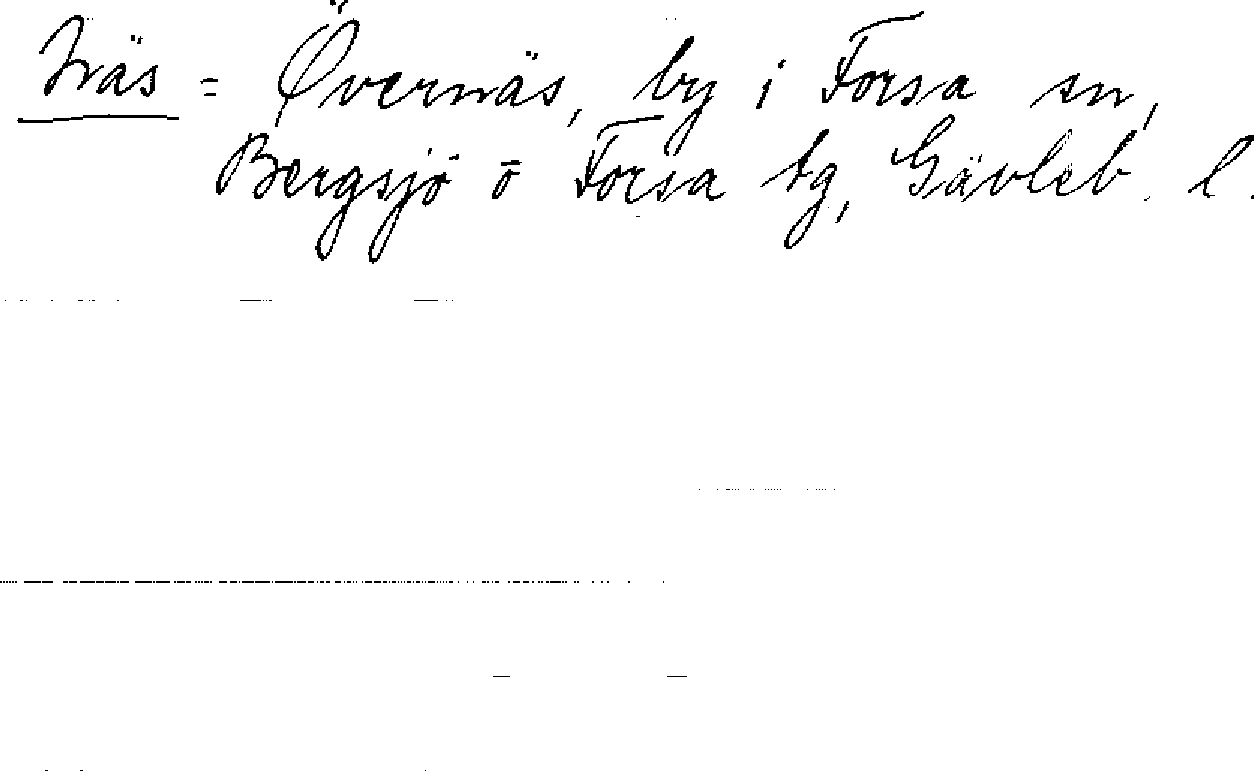 Näs = Övernäs, by i Forsa sn,
Bergsjö ō Forsa tg, Gävleb. l.